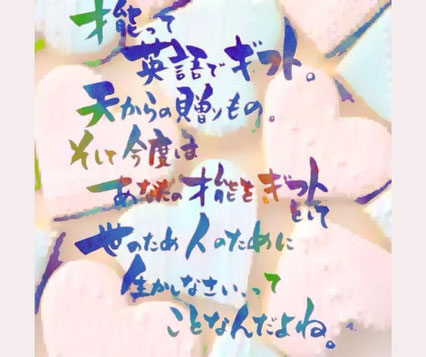 才能って
英語でギフト。
天からの贈りもの。
そして今度は
あなたの才能をギフト
として
世のため人のために
生かしなさい、って
ことなんだよね。